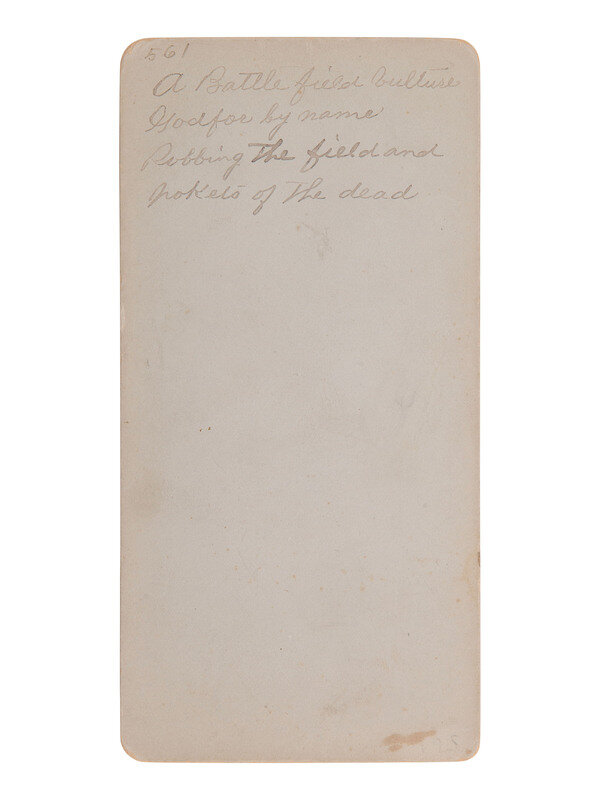 561
A Battle field Vulture
Godfor by name
Robbing the field and
pokets of the dead